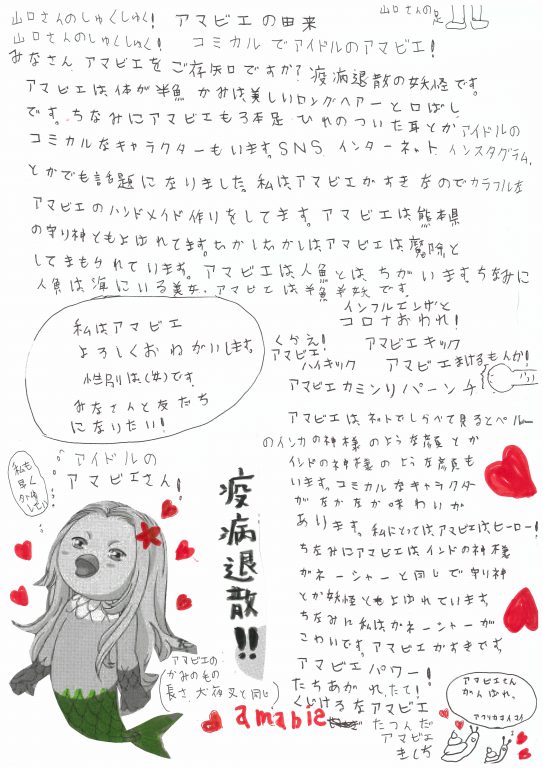 山口さんのしゅくしゅく! アマビエの由来
山口さんの足
山口さんのしゅくしゅく! コミカルでアイドルのアマビエ!
みなさん アマビエを ご存知ですか? 疫病退散の妖怪です。
アマビエは体が半魚 かみは美しいロングヘアーと口ばし
です。ちなみにアマビエも3本足 ひれのついた耳とか アイドルの
コミカルなキャラクターもいます。SNS インターネット インスタグラム、
とかでも話題になりました。私は、アマビエがすきなのでカラフルな
アマビエのハンドメイド作りをしてます。アマビエは熊本県
の守り神ともよばれてます。むかしむかしはアマビエは魔除と
してまもられています。アマビエは人魚とは、ちがいます。ちなみに
人魚は海にいる美女、アマビエは半魚半妖です。
インフルエンザと
コロナおわれ!
私はアマビエ
よろしくおねがいします。
性別は(女)です。
みなさんと友だち
になりたい!
くらえ! アマビエキック
アマビエ
ハイキック アマビエまけるもんか!
アマビエカミンリパーンチ
アマビエは、ネットでしらべて見るとペルー
のインカの神様のような顔とか
インドの神様のような顔も
います。コミカルなキャラクター
がなかなか味わいが
あります。私にとってはアマビエはヒーロー!
ちなみにアマビエはインドの神様
ガネーシャーと同じで守り神
とか妖怪ともよばれています。
ちなみに私はガネーシャーが
こわいです。アマビエがすきです。
アマビエパワー!
たちあがれたて!
くじけるなアマビエ
たつんだ
アマビエ
きしち
アイドルの
アマビエさん!
私も
早く
外出
したい
疫病退散!!
アマビエの
かみのもの
長さ、犬夜叉と同じ
amabie
アマビエさん
がんばれ。
アフリカマイマイ